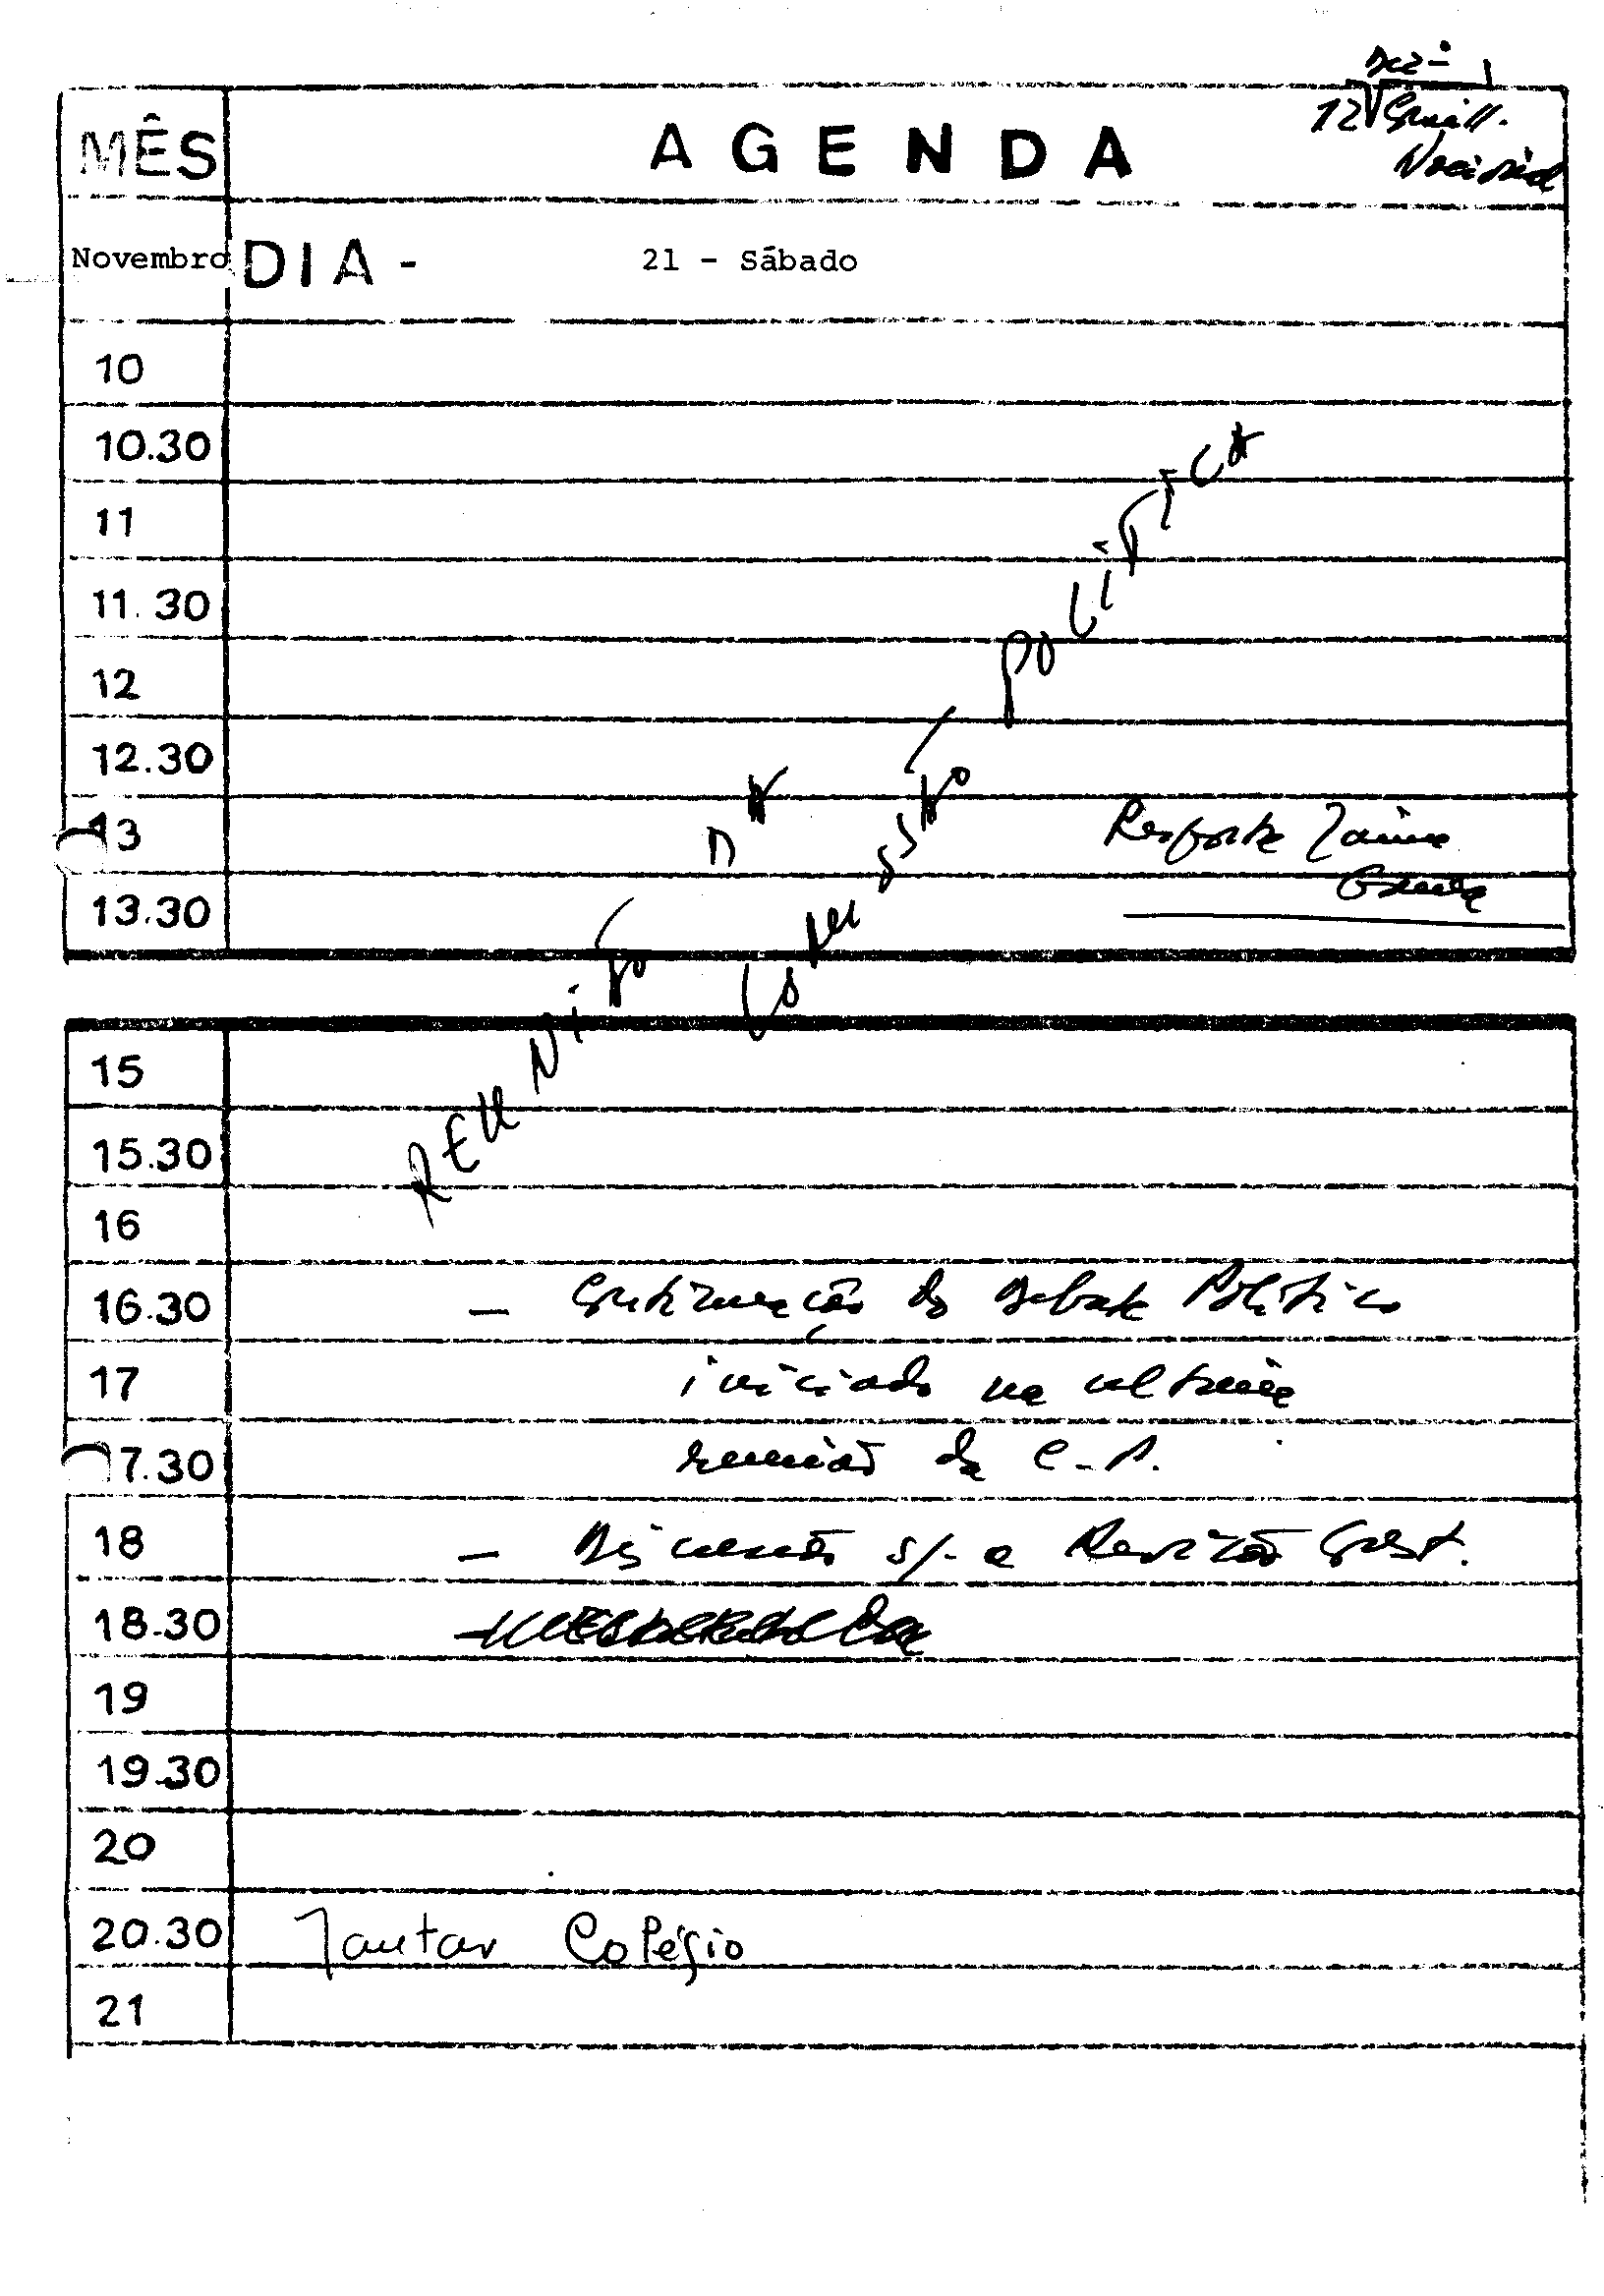 Dez-
12
MÊS
A G E N D A
Novembro
DIA -
21 - Sábado
10
10.30
11
11.30
12
12.30
13
Resposta Jaime
Gama
13.30
REUNIÃO DA
COMISSÃO POLÍTICA
15
15.30
16
16.30
- Continuação do Debate Político
17
iniciado na ultima
17.30
reunião da C.P.
18
- Discussão s/- a Revisão Const.
18.30
19
19.30
20
20.30
Jantar Colégio
21